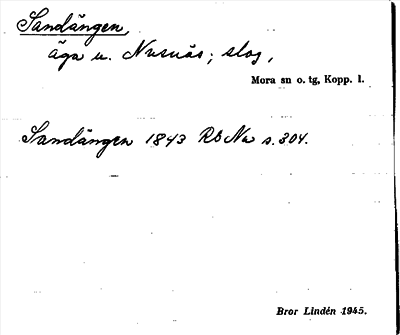 Sandängen,
äga u. Nusnäs; slog,
Mora sn o. tg, Kopp. l.
Sandängen 1843 RS Na s. 304.
Bror Lindén 1945.